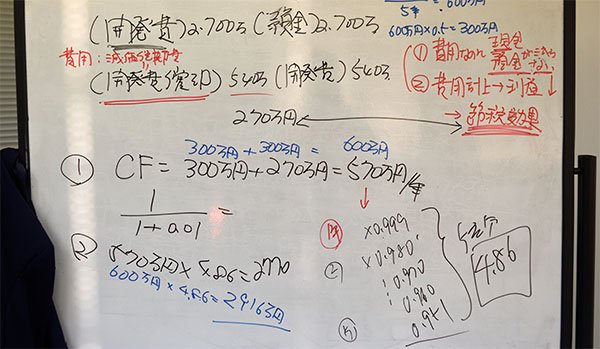 5年 = 600万
(開発費)2.700万 (預金)2.700万
600万円×0.5=300万円
費用:減価償却費
① 費用なのに現金
(開発費償却) 540万 (開発費) 540万
② 費用計上→利益↓
270万円
節税効果
300万円+300万円= 600万円
① CF=300万円+270万円=570万円/年
1/(1+0.01) =
×0.999
② 570万円×4.86=2770
② ×0.980
0.970
600万円×4.86=2916万円
0.960
⑤ 0.951
4.86